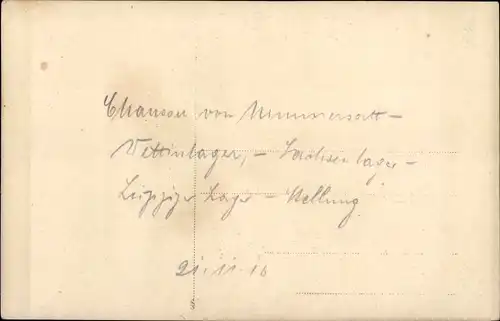 Chaussee von Nimmersatt -
Wettinlager, - Sachsenlager -
Leipziger Lager - Stellung
21.11.16
§